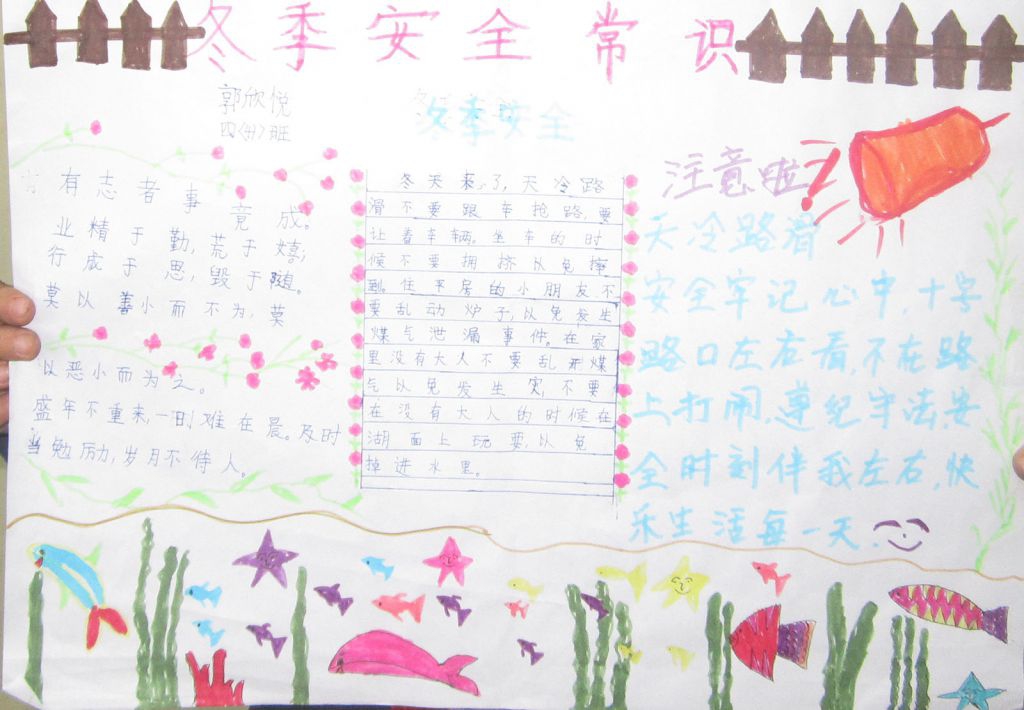 冬季安全常识
郭欣悦
四〈4〉班
冬季安全
有志者事竟成。
业精于勤,荒于嬉;
行成于思,毁于随。
莫以善小而不为,莫
以恶小而为之。
盛年不重来,一日难在晨。及时
当勉励,岁月不待人。
冬天来了,天冷路
滑不要跟车抢路,要
让着车辆。坐车的时
候不要拥挤以免摔
到。住平房的小朋友不
要乱动炉子,以免发生
煤气泄漏事件。在家
里没有大人不要乱开煤
气以免发生灾,不要
在没有大人的时候在
湖面上玩耍,以免
掉进水里。
注意啦
天冷路滑
安全牢记心中,十字
路口左右看,不在路
上打闹.遵纪守法,安
全时刻伴我左右,快
乐生活每一天.